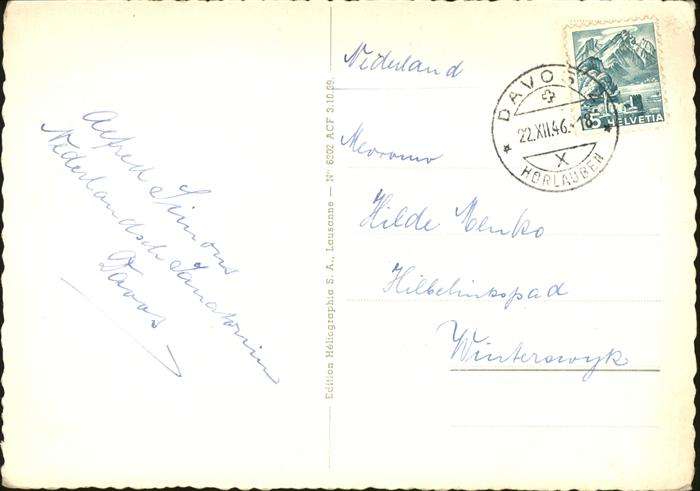 Alfred Simons
Nederlandsch Sanatorium
Davos
Edition Héliographia S. A., Lausanne — N° 6202 ACF 3.10.39.
Nederland
DAVOS
22.XII.46.-18
X
HORLAUBEN
5 HELVETIA
Mevrouw
Hilde Menko
Hilbelinkspad
Winterswyk